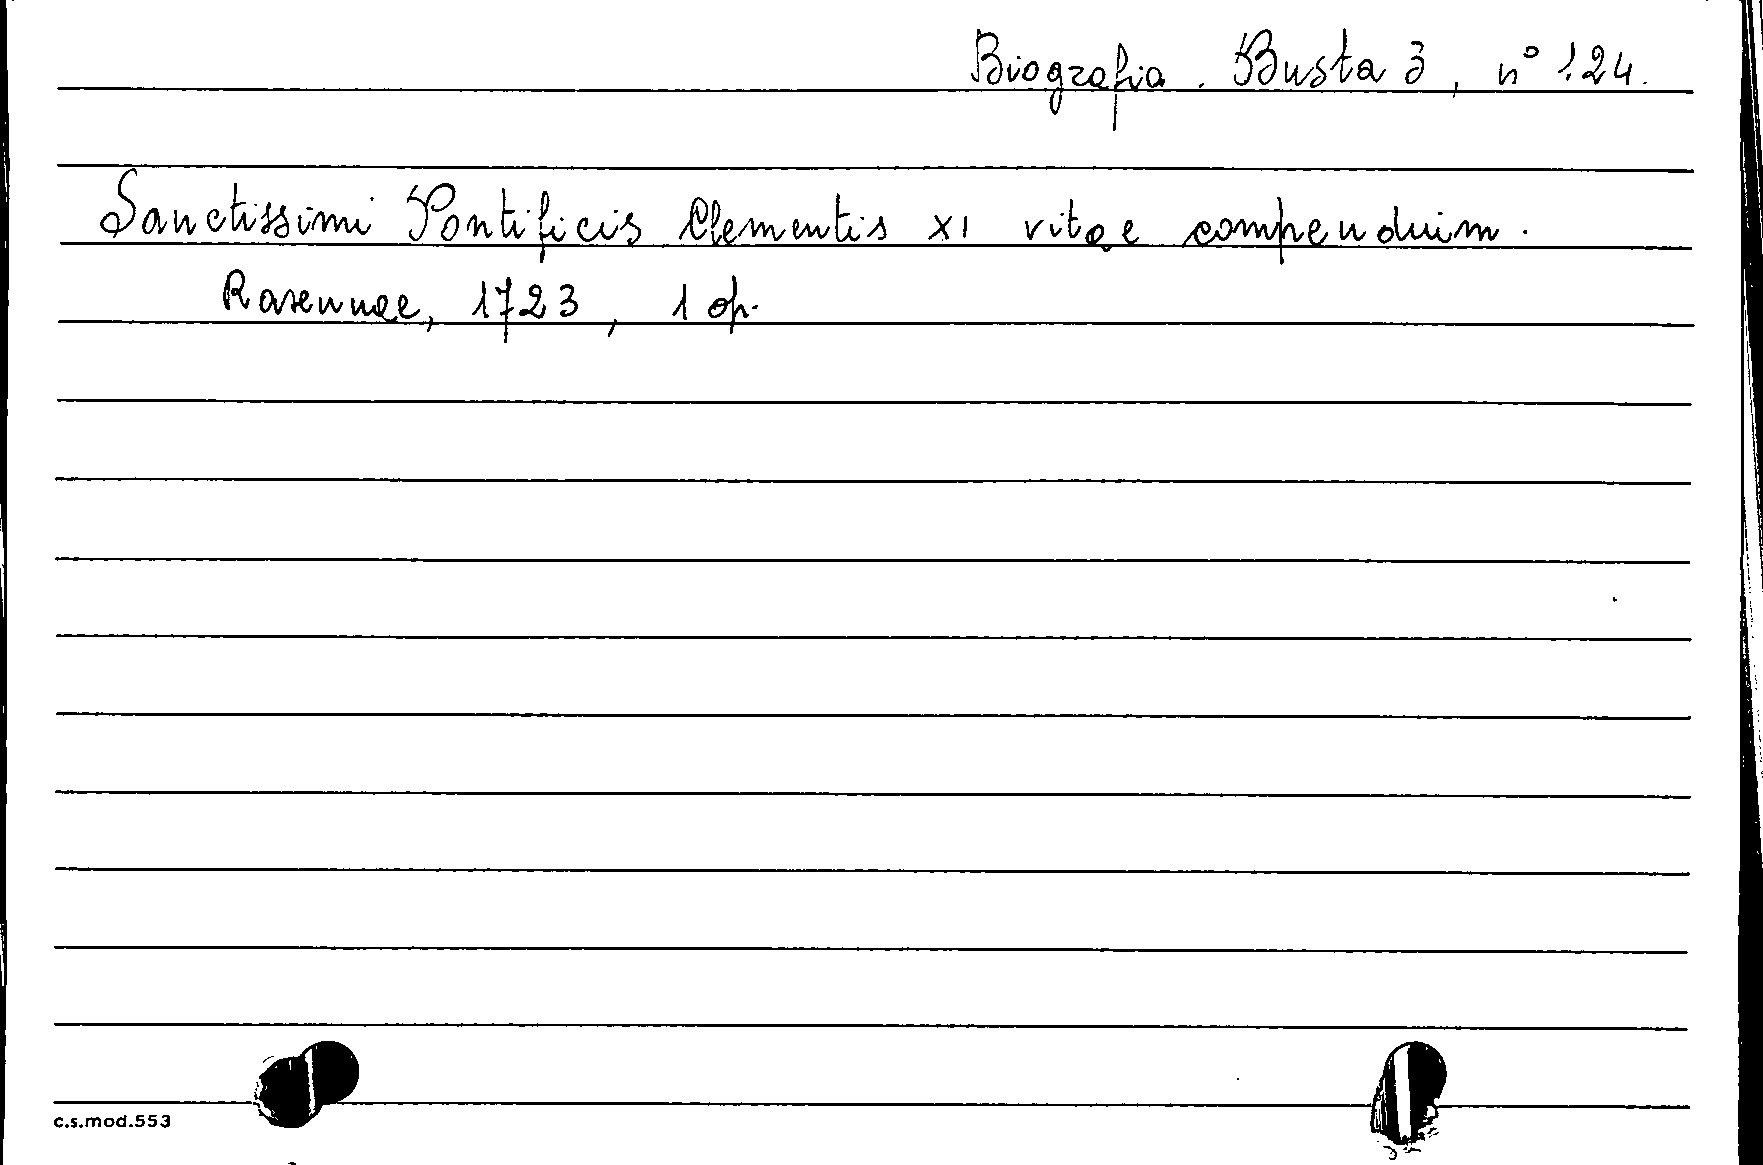 Biografia. Busta 3, n° 124.
Sanctissimi Pontificis Clementis XI vitae compendium.
Ravennae, 1723, 1 op.
c.s.mod.553